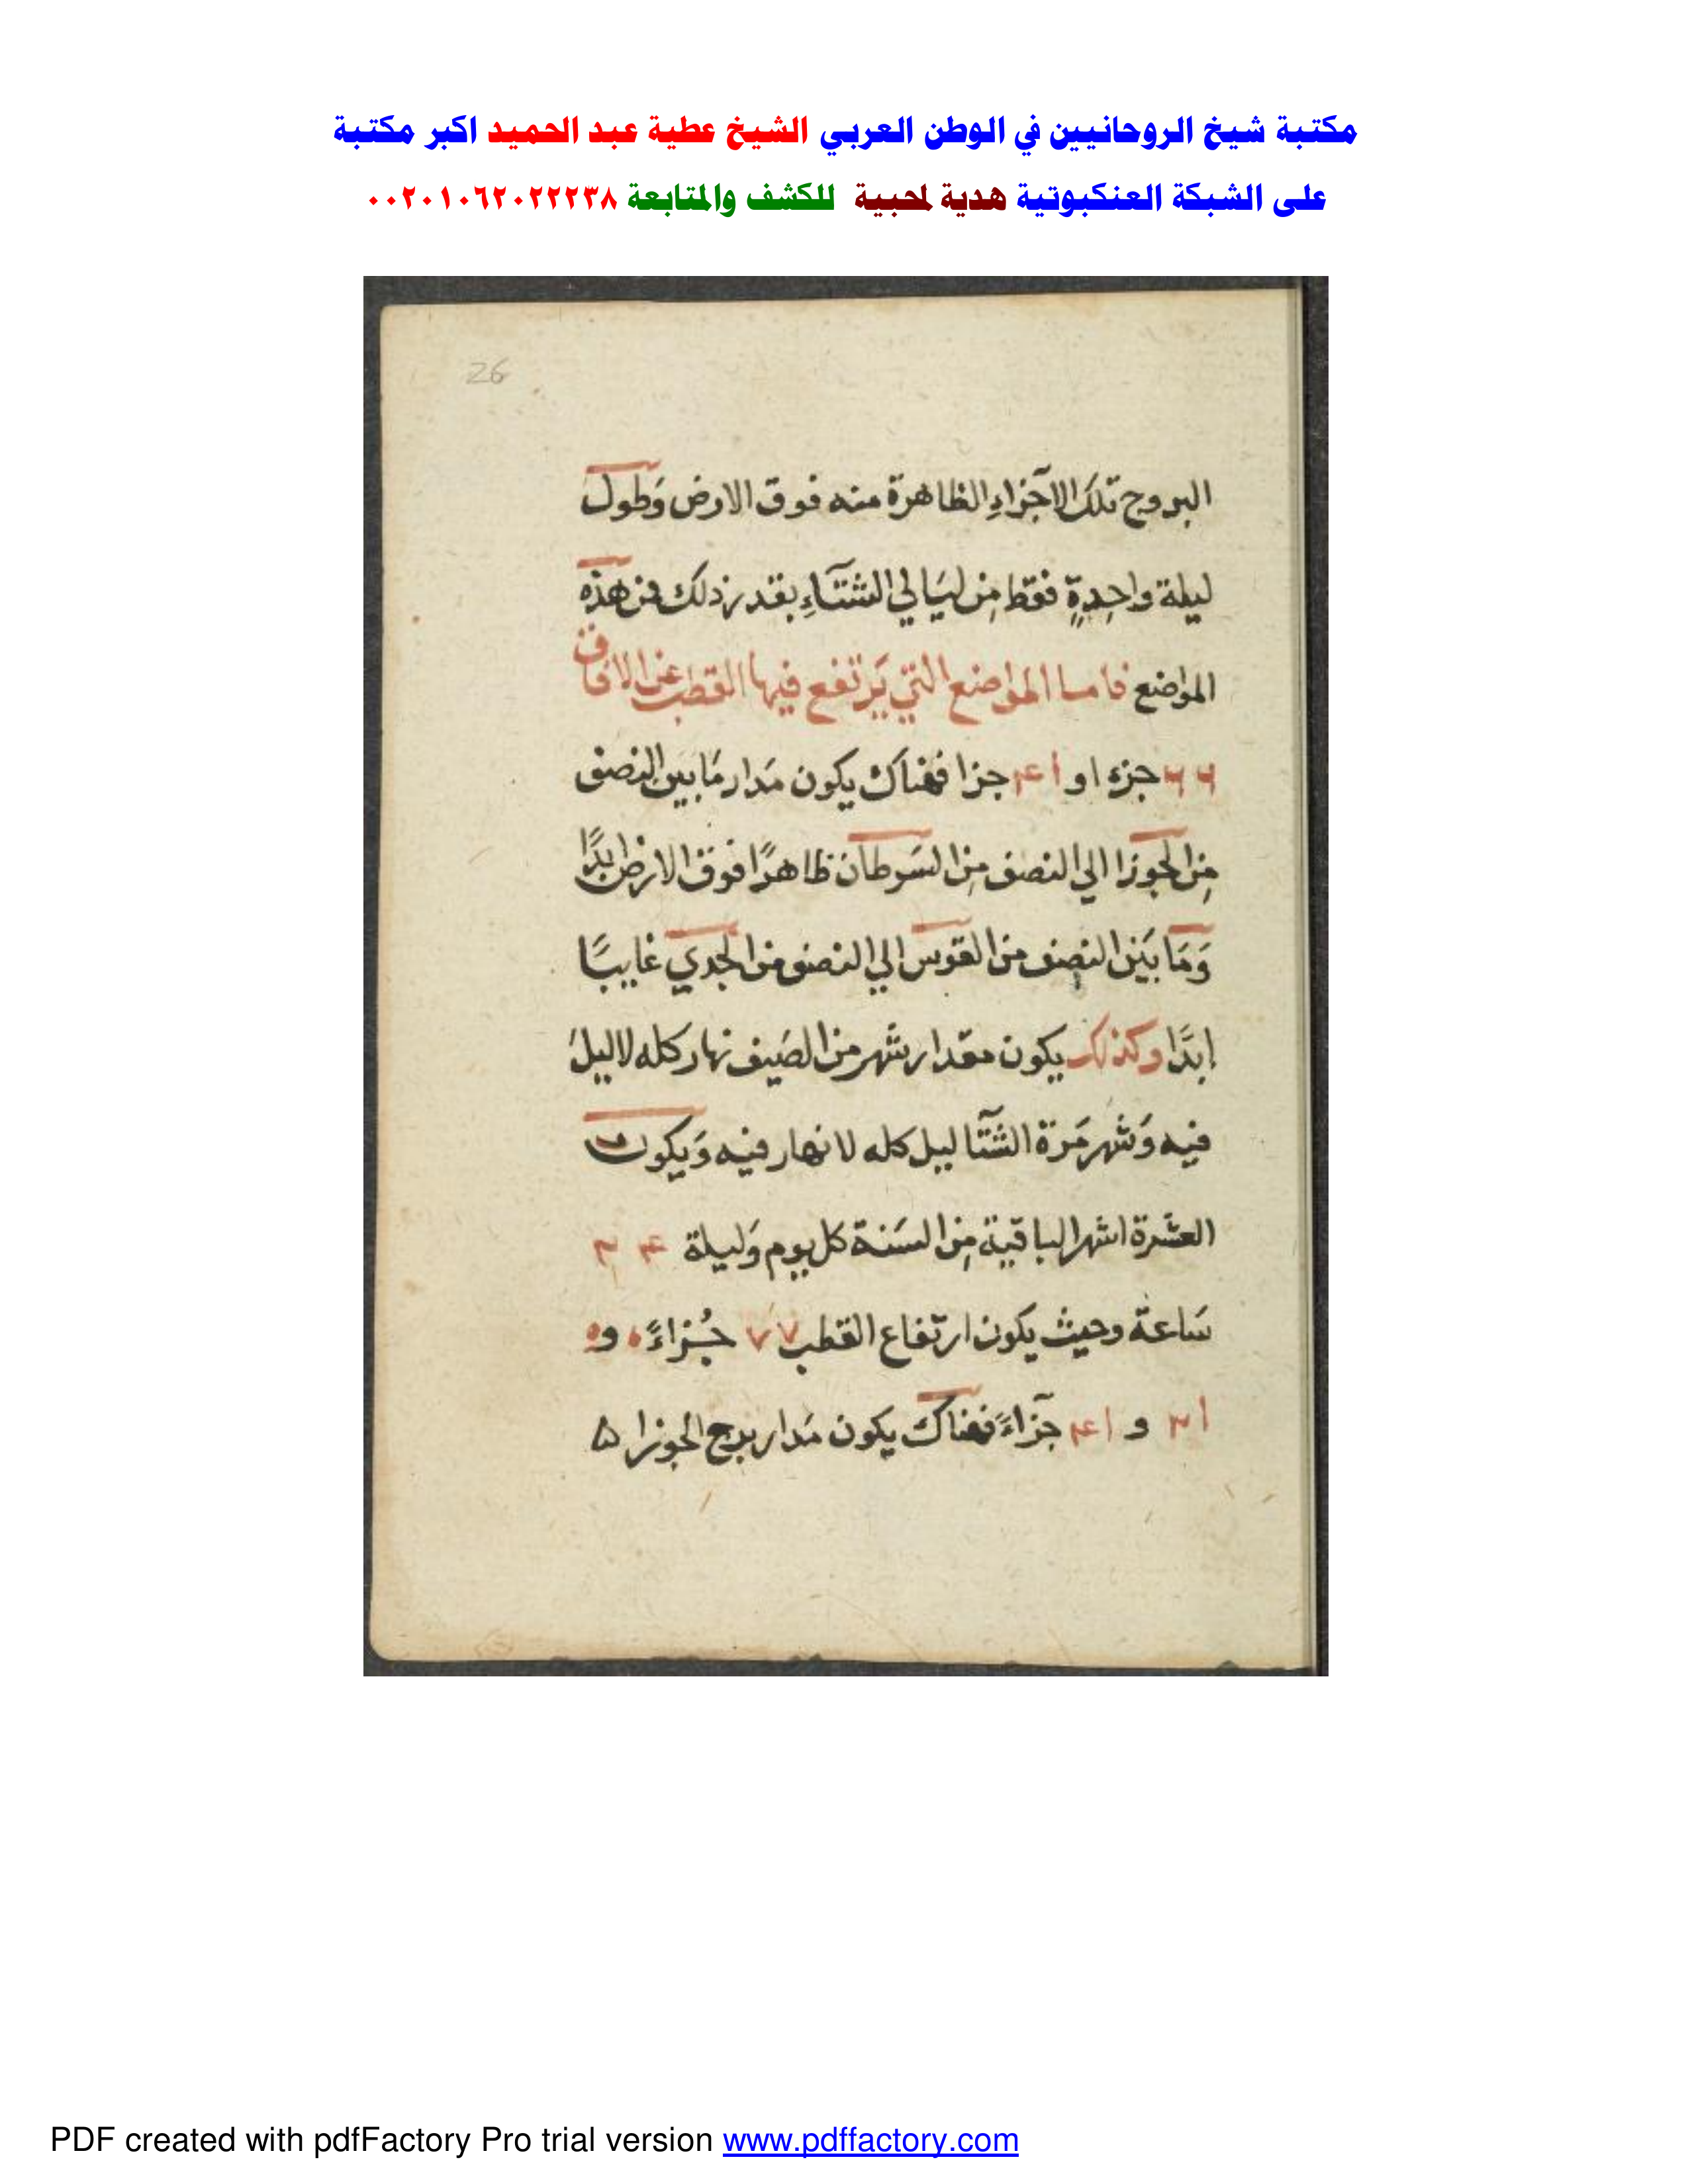 مكتبة شيخ الروحانيين في الوطن العربي الشيخ عطية عبد الحميد اكبر مكتبة
على الشبكة العنكبوتية هدية لمحبية للكشف والمتابعة ٠٠٢٠١٠٦٢٠٢٢٢٣٨
26
البروج تلك الآجزاءِ الظاهرة منه فوق الارض وَطول
ليلة واحِدةٍ فقط مِن ليَالي الشتآءِ بقدر ذلك من هذه
المواضع فاما المواضع التي يَرتفع فيها القطب عن الافاق
٦٦ جزء او ١ع٣ جزا فهناك يكون مَدار مَا بين النصف
مِن الجوزا الي النصف مِن السَرطان ظاهرًا فوق الارض ابدًا
وَمَا بَين النصف من القوس الي النصف من الجدي غايبًا
ابدًا وكذلك يكون مقدار شهر من الصَيف نهار كله لا ليل
فيه وَشهر مَرة الشتآ ليل كله لا نهار فيه وَيكون
العشرة اشهر الباقية مِن السَنة كل يوم وَليلة
سَاعة وحيث يكون ارتفاع القطب ٧٧ جُزاءً ٥ و٥
و جزاءً فهناك يكون مَدار برج الجوزا ۵
PDF created with pdfFactory Pro trial version www.pdffactory.com